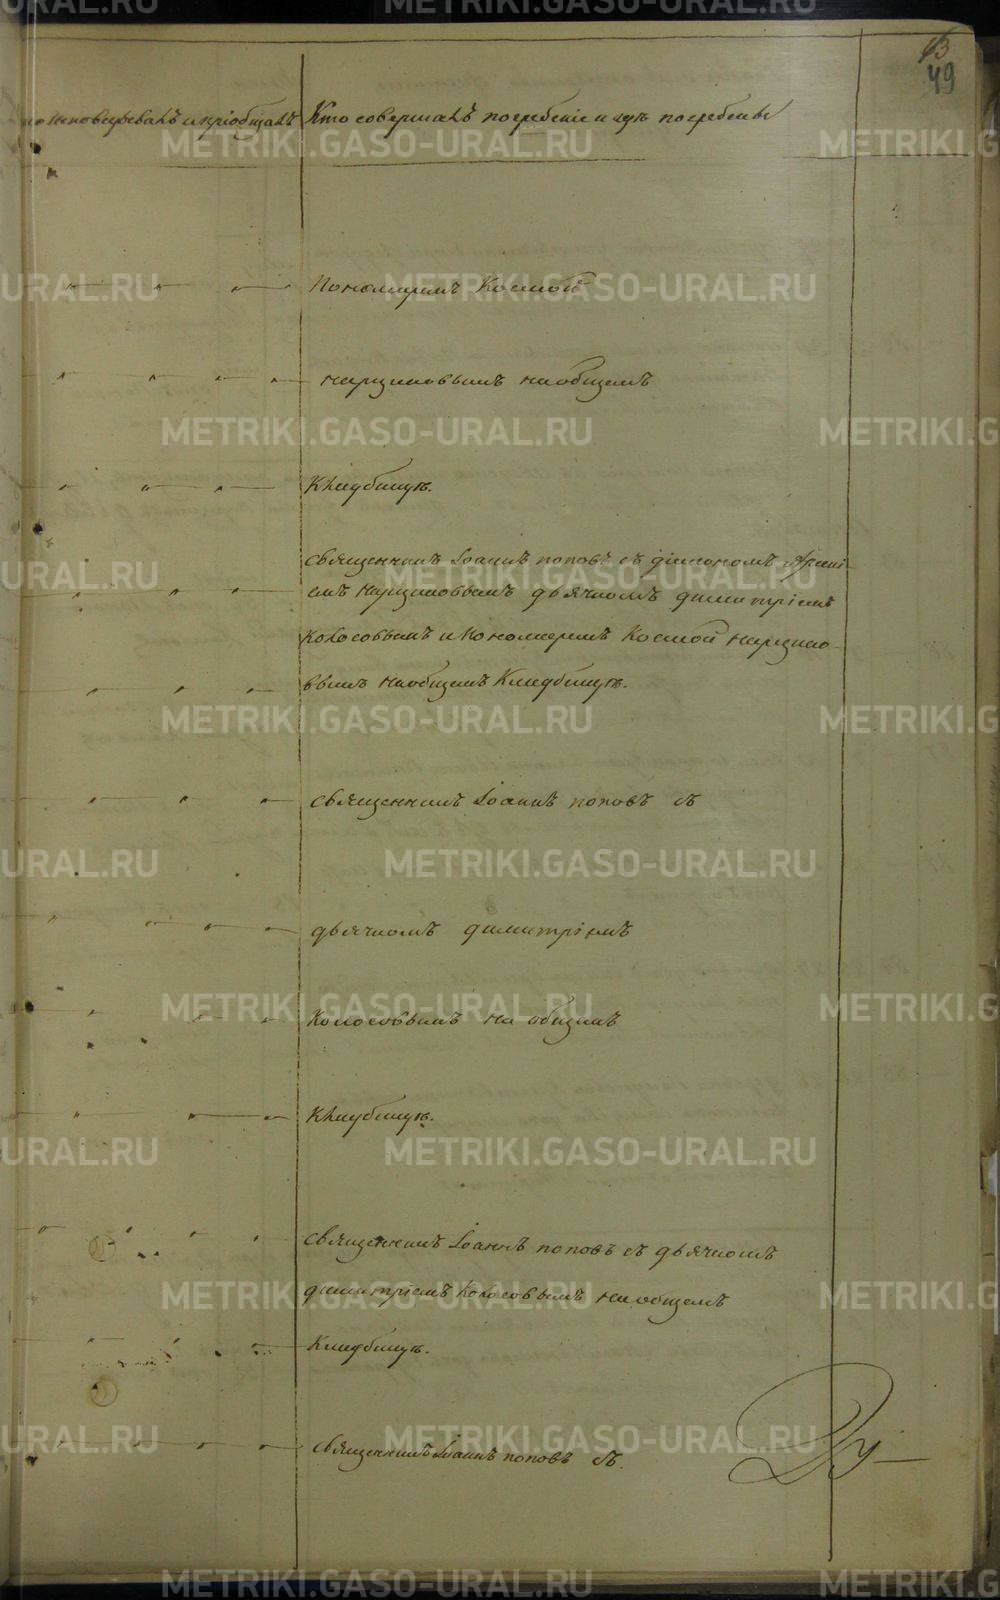 49
исповедывалъ и пріобщалъ Кто совершалъ погребеніе и гдѣ погребены
Пономаремъ Космой
на общемъ
Кладбищѣ.
Священникъ Іоаннъ поповъ съ діакономъ Арсені
емъ дьячкомъ димитріемъ
Колосовымъ и Пономаремъ Космой
вымъ на общемъ Кладбищѣ.
священникъ Іоаннъ поповъ съ
дьячкомъ димитріемъ
Колосовымъ на общемъ
Кладбищѣ.
священникъ Іоаннъ поповъ съ дьячкомъ
димитріемъ Колосовымъ на общемъ
Кладбищѣ.
священникъ Іоаннъ поповъ съ
METRIKI.GASO-URAL.RU